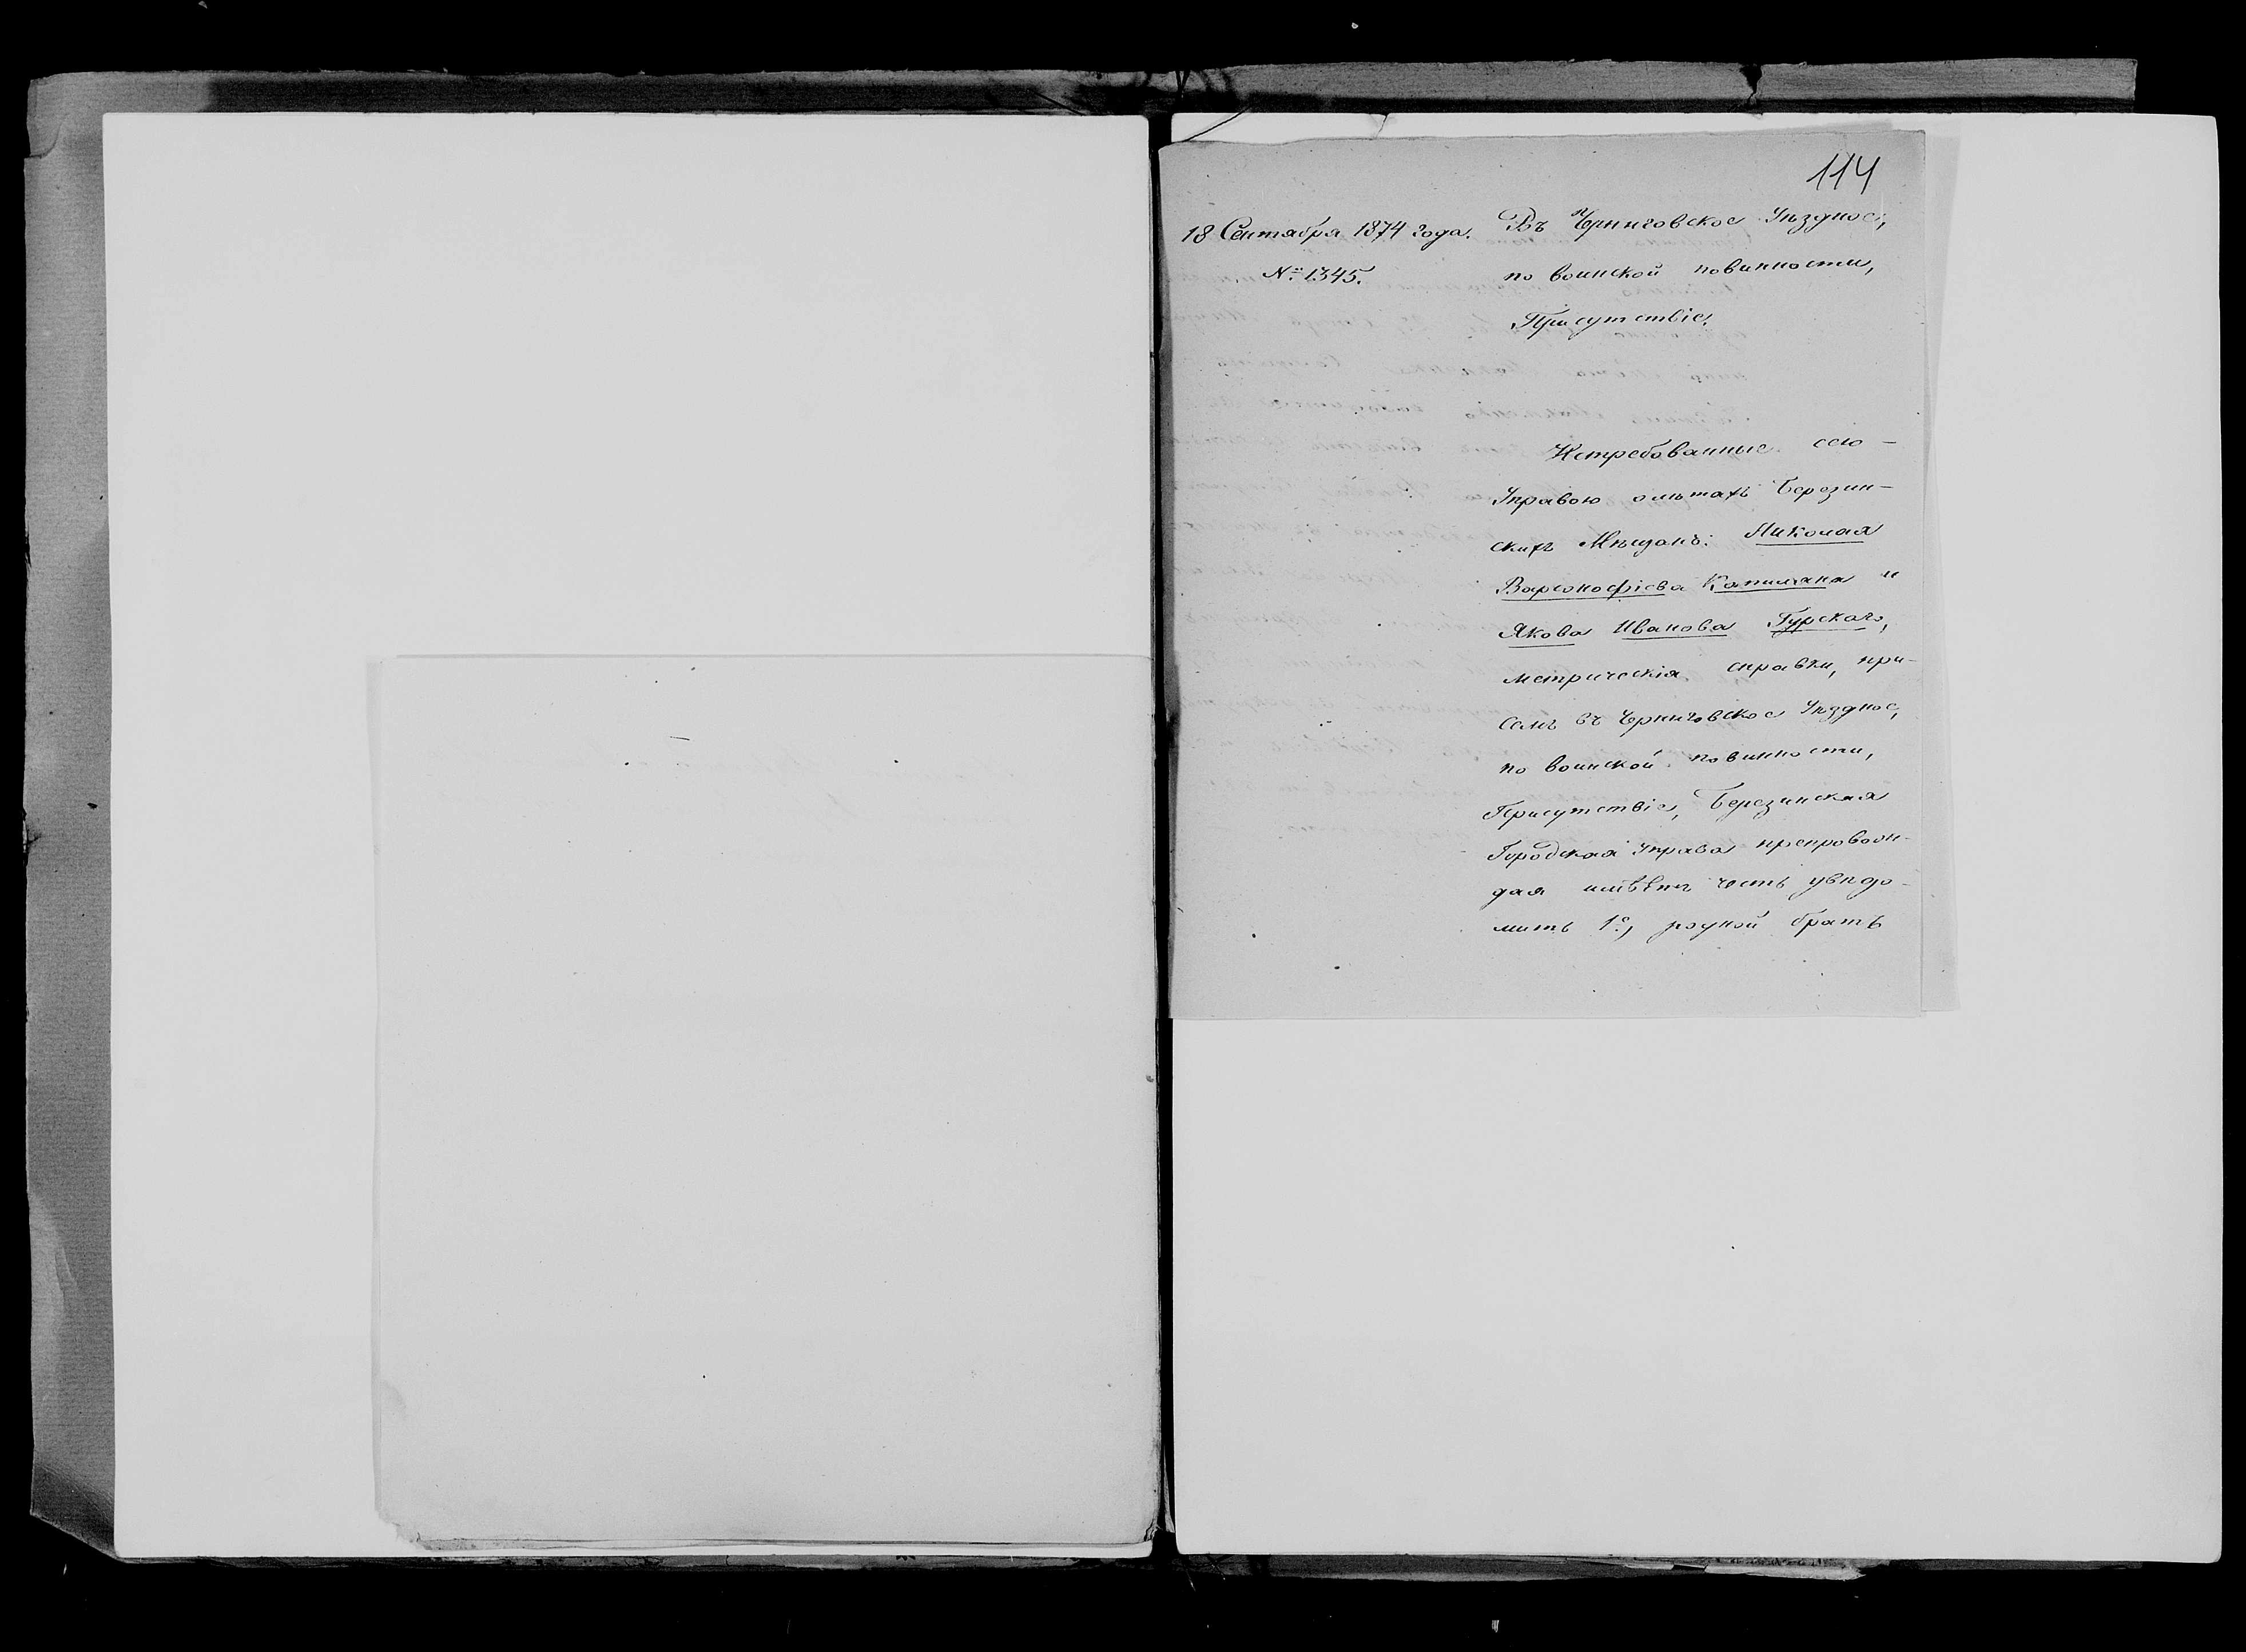 114
18 Сентября 1874 года.
№ 1345.
Въ Черниговское Уѣздное,
по воинской повинности,
Присутствіе.
Истребованные сею
Управою о лѣтахъ Березин-
скихъ Мѣщанъ: Николая
Варсонофіева Капшлана и
Якова Иванова Гурскаго,
метрическія справки, при
семъ въ Черниговское Уѣздное,
по воинской повинности,
Присутствіе, Березинская
Городская Управа препровож-
дая имѣетъ честь увѣдо-
мить 1е, родной братъ